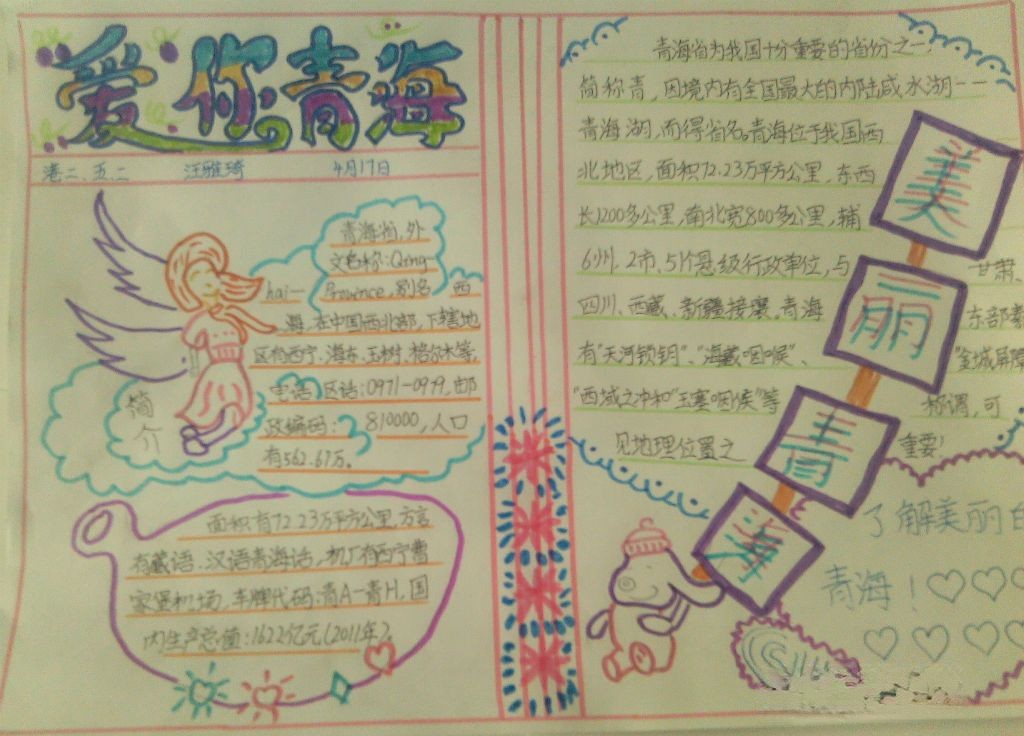 爱你青海
港二、五、二 汪雅琦 4月17日
青海省,外
文名称:Qing
hai—Province,别名 西
海,在中国西北部,下辖地
区有西宁、海东、玉树、格尔木等,
电话区话:0971-0979,邮
政编码:810000,人口
有562.67万。
简
介
面积有72.23万平方公里,方言
有藏语、汉语青海话,机厂有西宁曹
家堡机场,车牌代码:青A-青H,国
内生产总值:1622亿元(2011年)。
青海省为我国十分重要的省份之一,
简称青,因境内有全国最大的内陆咸水湖——
青海湖,而得省名。青海位于我国西
北地区,面积72.23万平方公里,东西
长1200多公里,南北宽800多公里,辅
6州、2市、51个县级行政单位,与 甘肃、
四川、西藏、新疆接壤。青海 东部素
有"天河锁钥"、"海藏咽喉"、 "金城屏障
"西域之冲和"玉塞咽侯"等 称谓,可
见地理位置之 重要!
美
丽
青
海
了解美丽白
青海!